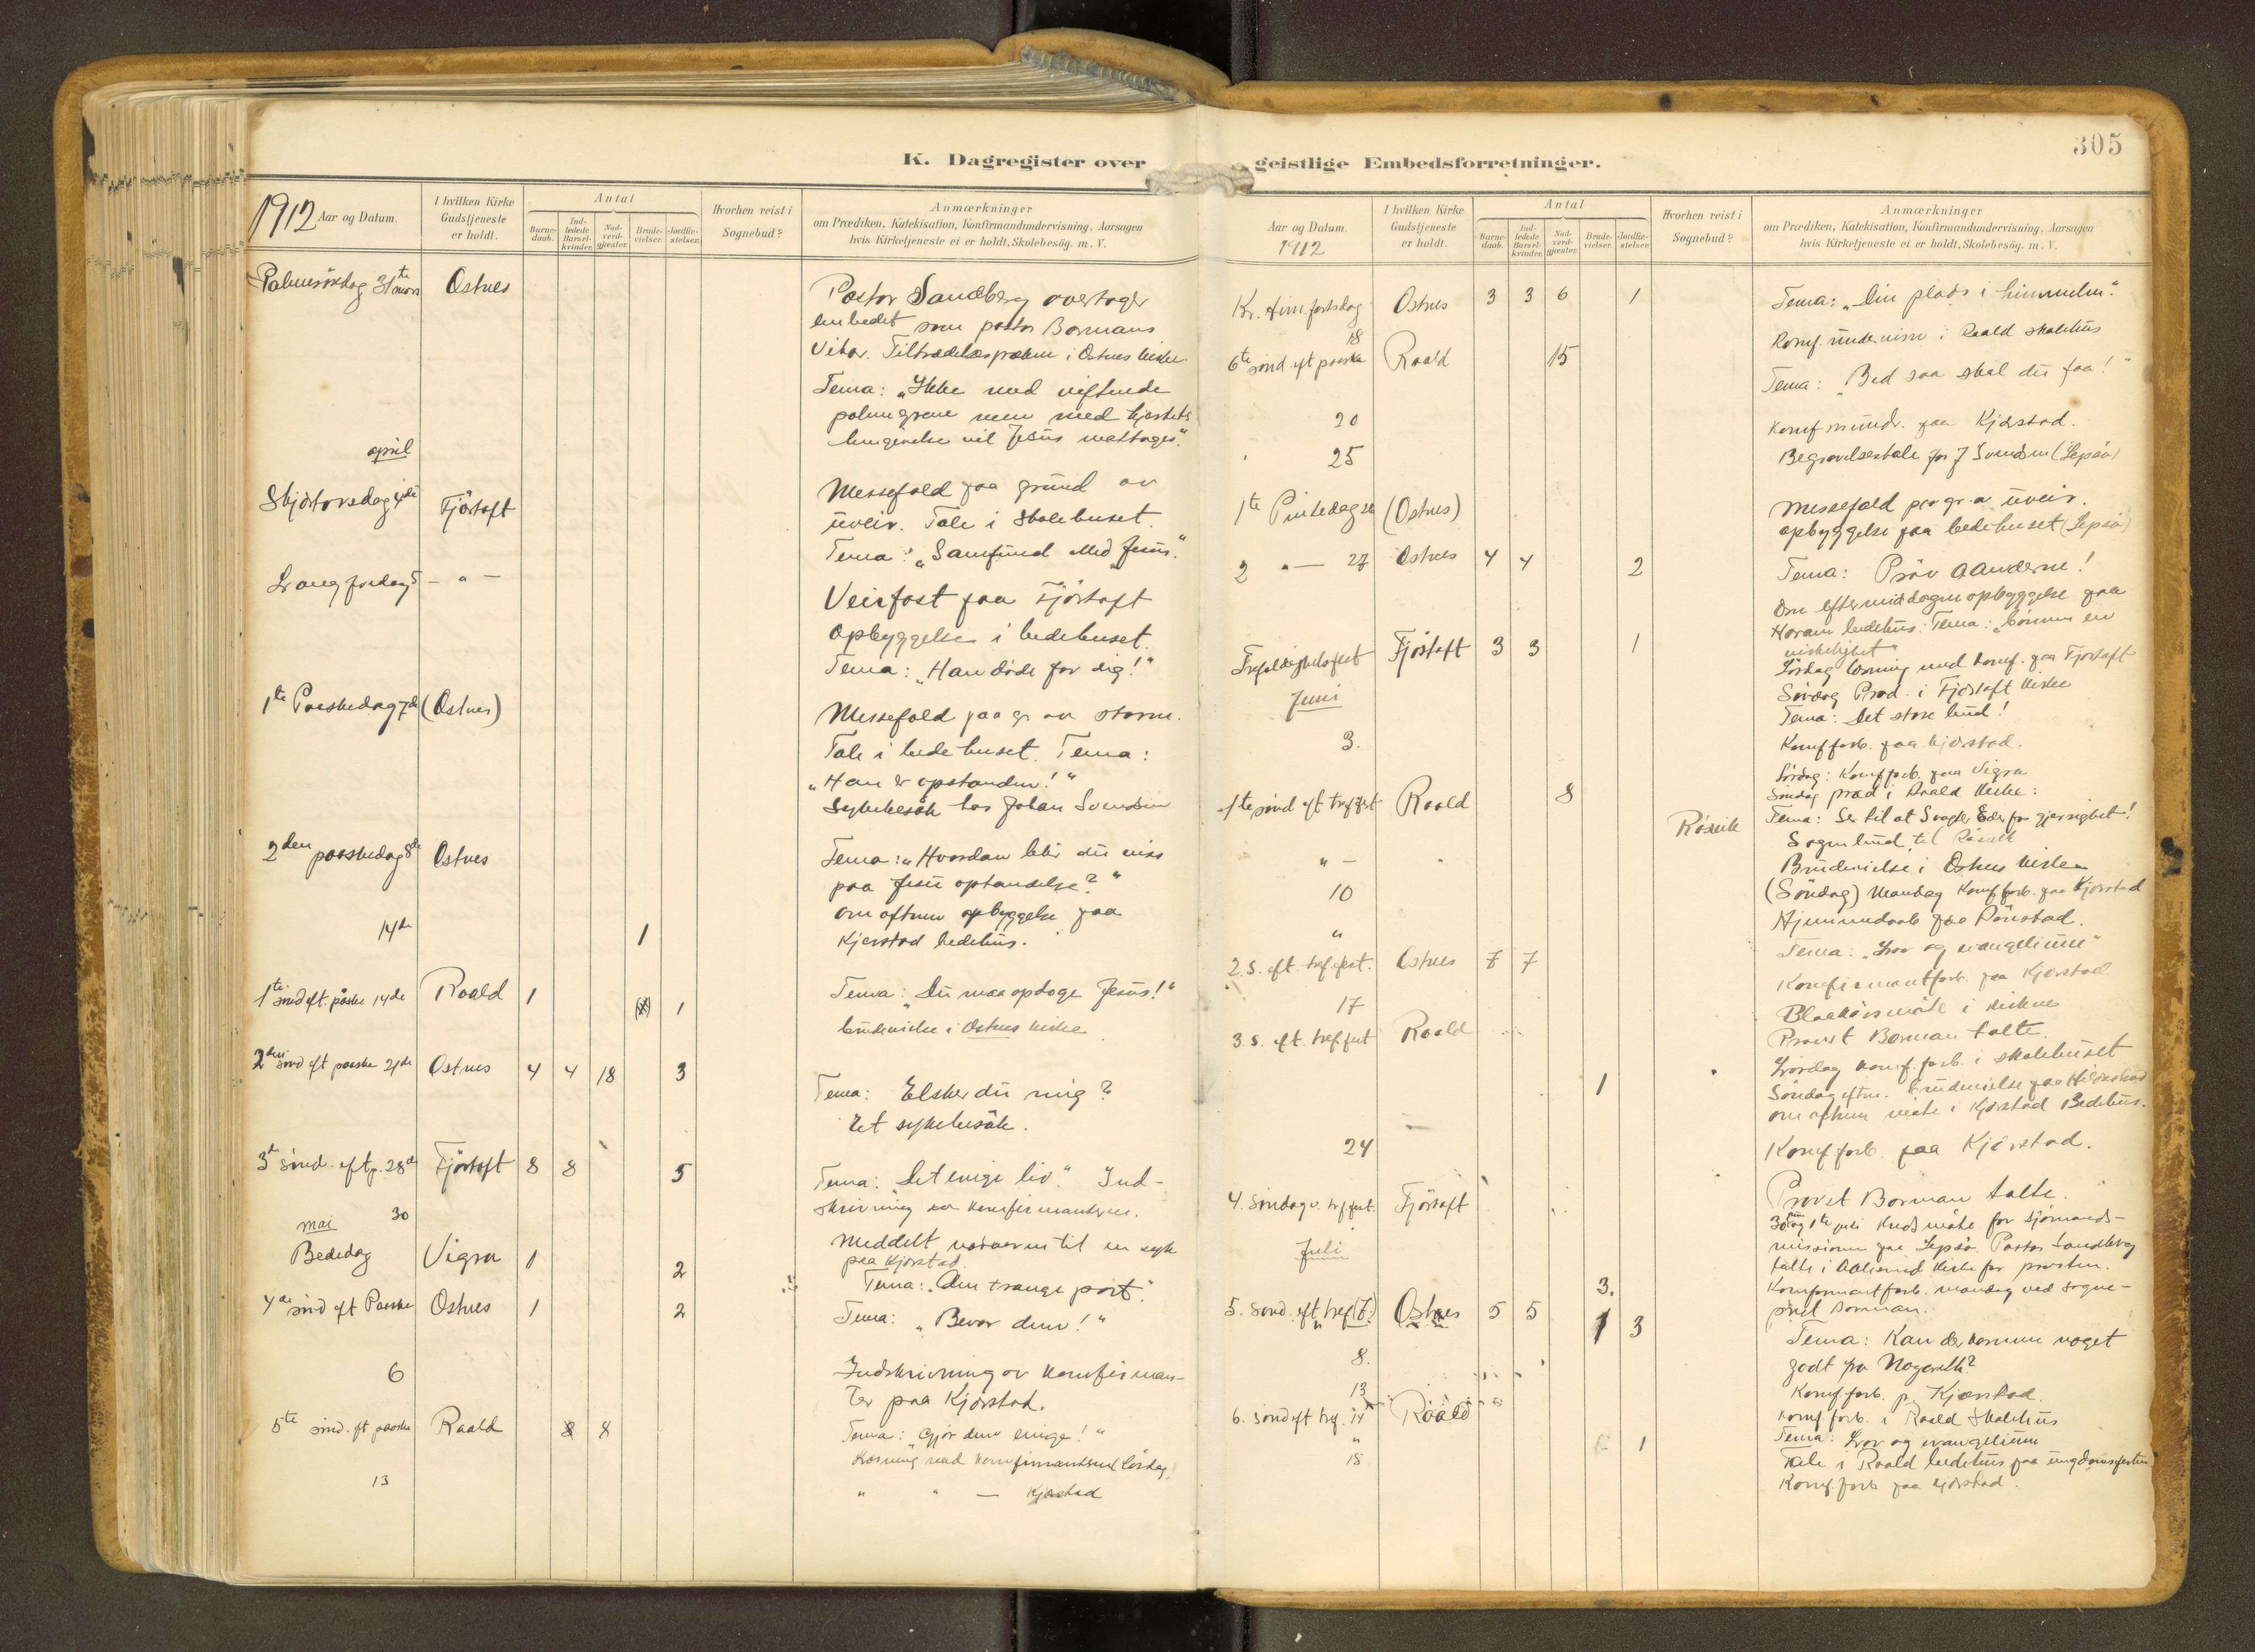 305
K. Dagregister over geistlige Embedsforretninger.
1912 Aar og Datum.
I hvilken Kirke Gudstjeneste er holdt.
Antal
Barne-daab.
Ind-ledede Barsel-kvinder.
Nad-verd-gjester.
Brude-vielser.
Jordfæ-stelser.
Hvorhen reist i Sognebud?
Anmærkninger
om Prædiken, Katekisation, Konfirmandundervisning, Aarsagen
hvis Kirketjeneste ei er holdt, Skolebesög. m. V.
Palmesöndag 31te mars Östnes
Pastor Sandberg overtager
embedet som pastor Bormans
Vikar. Tiltrædelsespræken i Östnes kirke.
Tema: "Ikke med viftende
palmegrene men med hjertets
hengivelse vil Jesus mottages."
april
Skjærtorsdag 4de Fjörtoft
Messefald paa grund av
uveir. Tale i skolehuset.
Tema: "Samfund med Jesus."
Langfredag 5 — " —
Veirfast paa Fjörtoft
Opbyggelse i bedehuset.
Tema: "Han döde for dig!"
1te Paaskedag 7de (Östnes)
Messefald paa gr av storm.
Tale i bedehuset. Tema:
"Han er opstanden!"
Sykebesök hos Johan Svendsen
2den paaskedag 8de Östnes
Tema: "Hvordan blir du viss
paa Jesu optandelse?"
om aftnen opbyggelse paa
Kjerstad bedehus.
14de 1
1te sönd eft. påske 14de Roald 1 (1) 1
Tema: "Du maa opdage Jesus!"
brudevielse i Östnes kirke
2den sönd eft paaske 21de Östnes 4 4 18 3
Tema: Elsker du mig?
Et sykebesök.
3de sönd. eft p. 28de Fjörtoft 8 8 5
Tema: "Det evige liv." Ind-
skrivning av konfirmanterne.
30
Meddelt nadveren til en syk
paa Kjörstad.
mai
Bededag Vigra 1 2
Tema: "Den trange port."
4de sönd eft Paaske Östnes 1 2
Tema: "Bevar dem!"
6
Indskrivning av konfirman-
ter paa Kjörstad.
5te sönd. eft paaske Roald 8 8
Tema: "Gjör dem enige!"
Læsning med konfirmantene lördag.
13
" " — Kjerstad
Aar og Datum.
1912
I hvilken Kirke Gudstjeneste er holdt.
Antal
Barne-daab.
Ind-ledede Barsel-kvinder.
Nad-verd-gjester.
Brude-vielser.
Jordfæ-stelser.
Hvorhen reist i Sognebud?
Anmærkninger
om Prædiken, Katekisation, Konfirmandundervisning, Aarsagen
hvis Kirketjeneste ei er holdt, Skolebesög. m. V.
Kr. Him. fartsdag Östnes 3 3 6 1
Tema: "Din plads i himmelen."
18
Konf. undervisn i Roald skolehus
6te sönd eft paaske Roald 15
Tema: "Bed saa skal du faa!"
20
Konf mundr. paa Kjerstad.
25
Begravelsestale for J Svendsen (Lepsö)
1te Pintsedag 26 (Östnes)
Messefald paa gr. a uveir.
opbyggelse paa bedehuset (Lepsö)
2 " — 27 Östnes 4 4 2
Tema: Pröv aanderne!
Om eftermiddagen opbyggelse paa
Haram bedehus: Tema: "Bönnen en
virkelighet"
Trefoldighetsfest Fjörtoft 3 3 1
Lördag læsning med konf. paa Fjörtoft
Söndag Præd. i Fjörtoft kirke
Tema: Det store bud!
Juni
3.
Konf forb. paa Kjörstad.
Lördag: Konf forb. paa Vigra
1te sönd eft tref fest Roald 8
Söndag præd i Roald kirke:
Tema: Se til at I vogter Eder for gjerrighet!
Rösvik
Sognebud til Rösvik
" —
Brudevielse i Östnes kirke
10
(Söndag) Mandag Konf forb. paa Kjörstad
"
Hjemmedaab paa Rönstad.
2. S. eft tref. fest. Östnes 7 7
Tema: "Lov og evangelium"
17
Konfirmantforb. paa Kjörstad
Blaakorsmöte i kirken
3. S. eft. tref. fest Roald
Provst Borman talte.
Lördag konf. forb. i skolehuset
1
Söndag eftm. Brudevielse paa Hildrestrand
om aftnen möte i Kjörstad Bedehus.
24
Konf forb. paa Kjörstad.
4. Söndag e. tref fest. Fjörtoft
Provst Borman talte.
30 juni og 1te juli Kredsmöte for sjömands-
missionen paa Lepsö. Pastor Sandberg
talte i Aalesund kirke for provsten.
Juli
3.
Konfirmantforb. mandag ved sogne-
prest Borman.
5. Sönd. eft tref (7.) Östnes 5 5 1 3
Tema: Kan der komme noget
godt fra Nazareth?
8.
Konf. forb. p. Kjærstad.
13
Konf. forb. i Roald Skolehus
6. Sönd eft tref. 14 Roald
Tema: Lov og evangelium
" 1
Tale i Roald bedehus paa ungdomsfesten
15
Konf. forb paa Kjörstad.